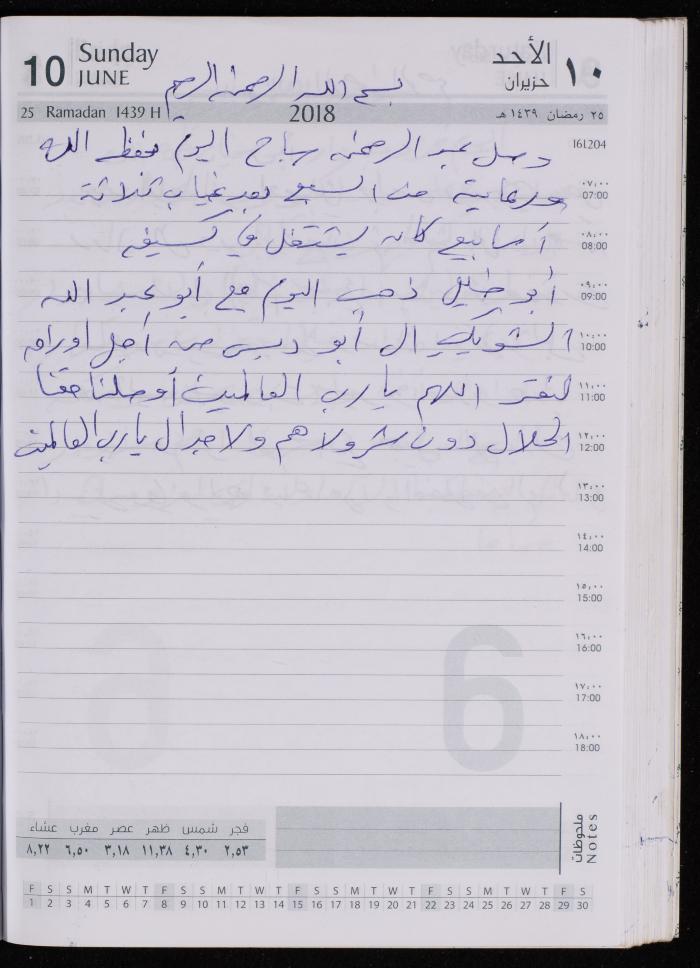 10 Sunday JUNE
الأحد ١٠ حزيران
بسم الله الرحمن الرحيم
25 Ramadan 1439 H 2018 ٢٥ رمضان ١٤٣٩ هـ
161204
وصل عبد الرحمن صباح اليوم بحفظ الله
٠٧,٠٠ 07:00
ورعايته من السبع بعد غياب ثلاثة
٠٨,٠٠ 08:00
أسابيع كان يشتغل في كسيفه
٠٩,٠٠ 09:00
أبو خليل ذهب اليوم مع أبو عبد الله
١٠,٠٠ 10:00
الشويكي ال أبو ديس من أجل اوراق
١١,٠٠ 11:00
اللهم يارب العالمين أوصلنا حقنا
١٢,٠٠ 12:00
الحلال دون شر ولا هم ولا جدال يارب العالمين
١٣,٠٠ 13:00
١٤,٠٠ 14:00
١٥,٠٠ 15:00
١٦,٠٠ 16:00
١٧,٠٠ 17:00
١٨,٠٠ 18:00
6
فجر شمس ظهر عصر مغرب عشاء
٢,٥٣ ٤,٣٠ ١١,٣٨ ٣,١٨ ٦,٥٠ ٨,٢٢
ملحوظات
Notes
F S S M T W T F S S M T W T F S S M T W T F S S M T W T F S
1 2 3 4 5 6 7 8 9 10 11 12 13 14 15 16 17 18 19 20 21 22 23 24 25 26 27 28 29 30